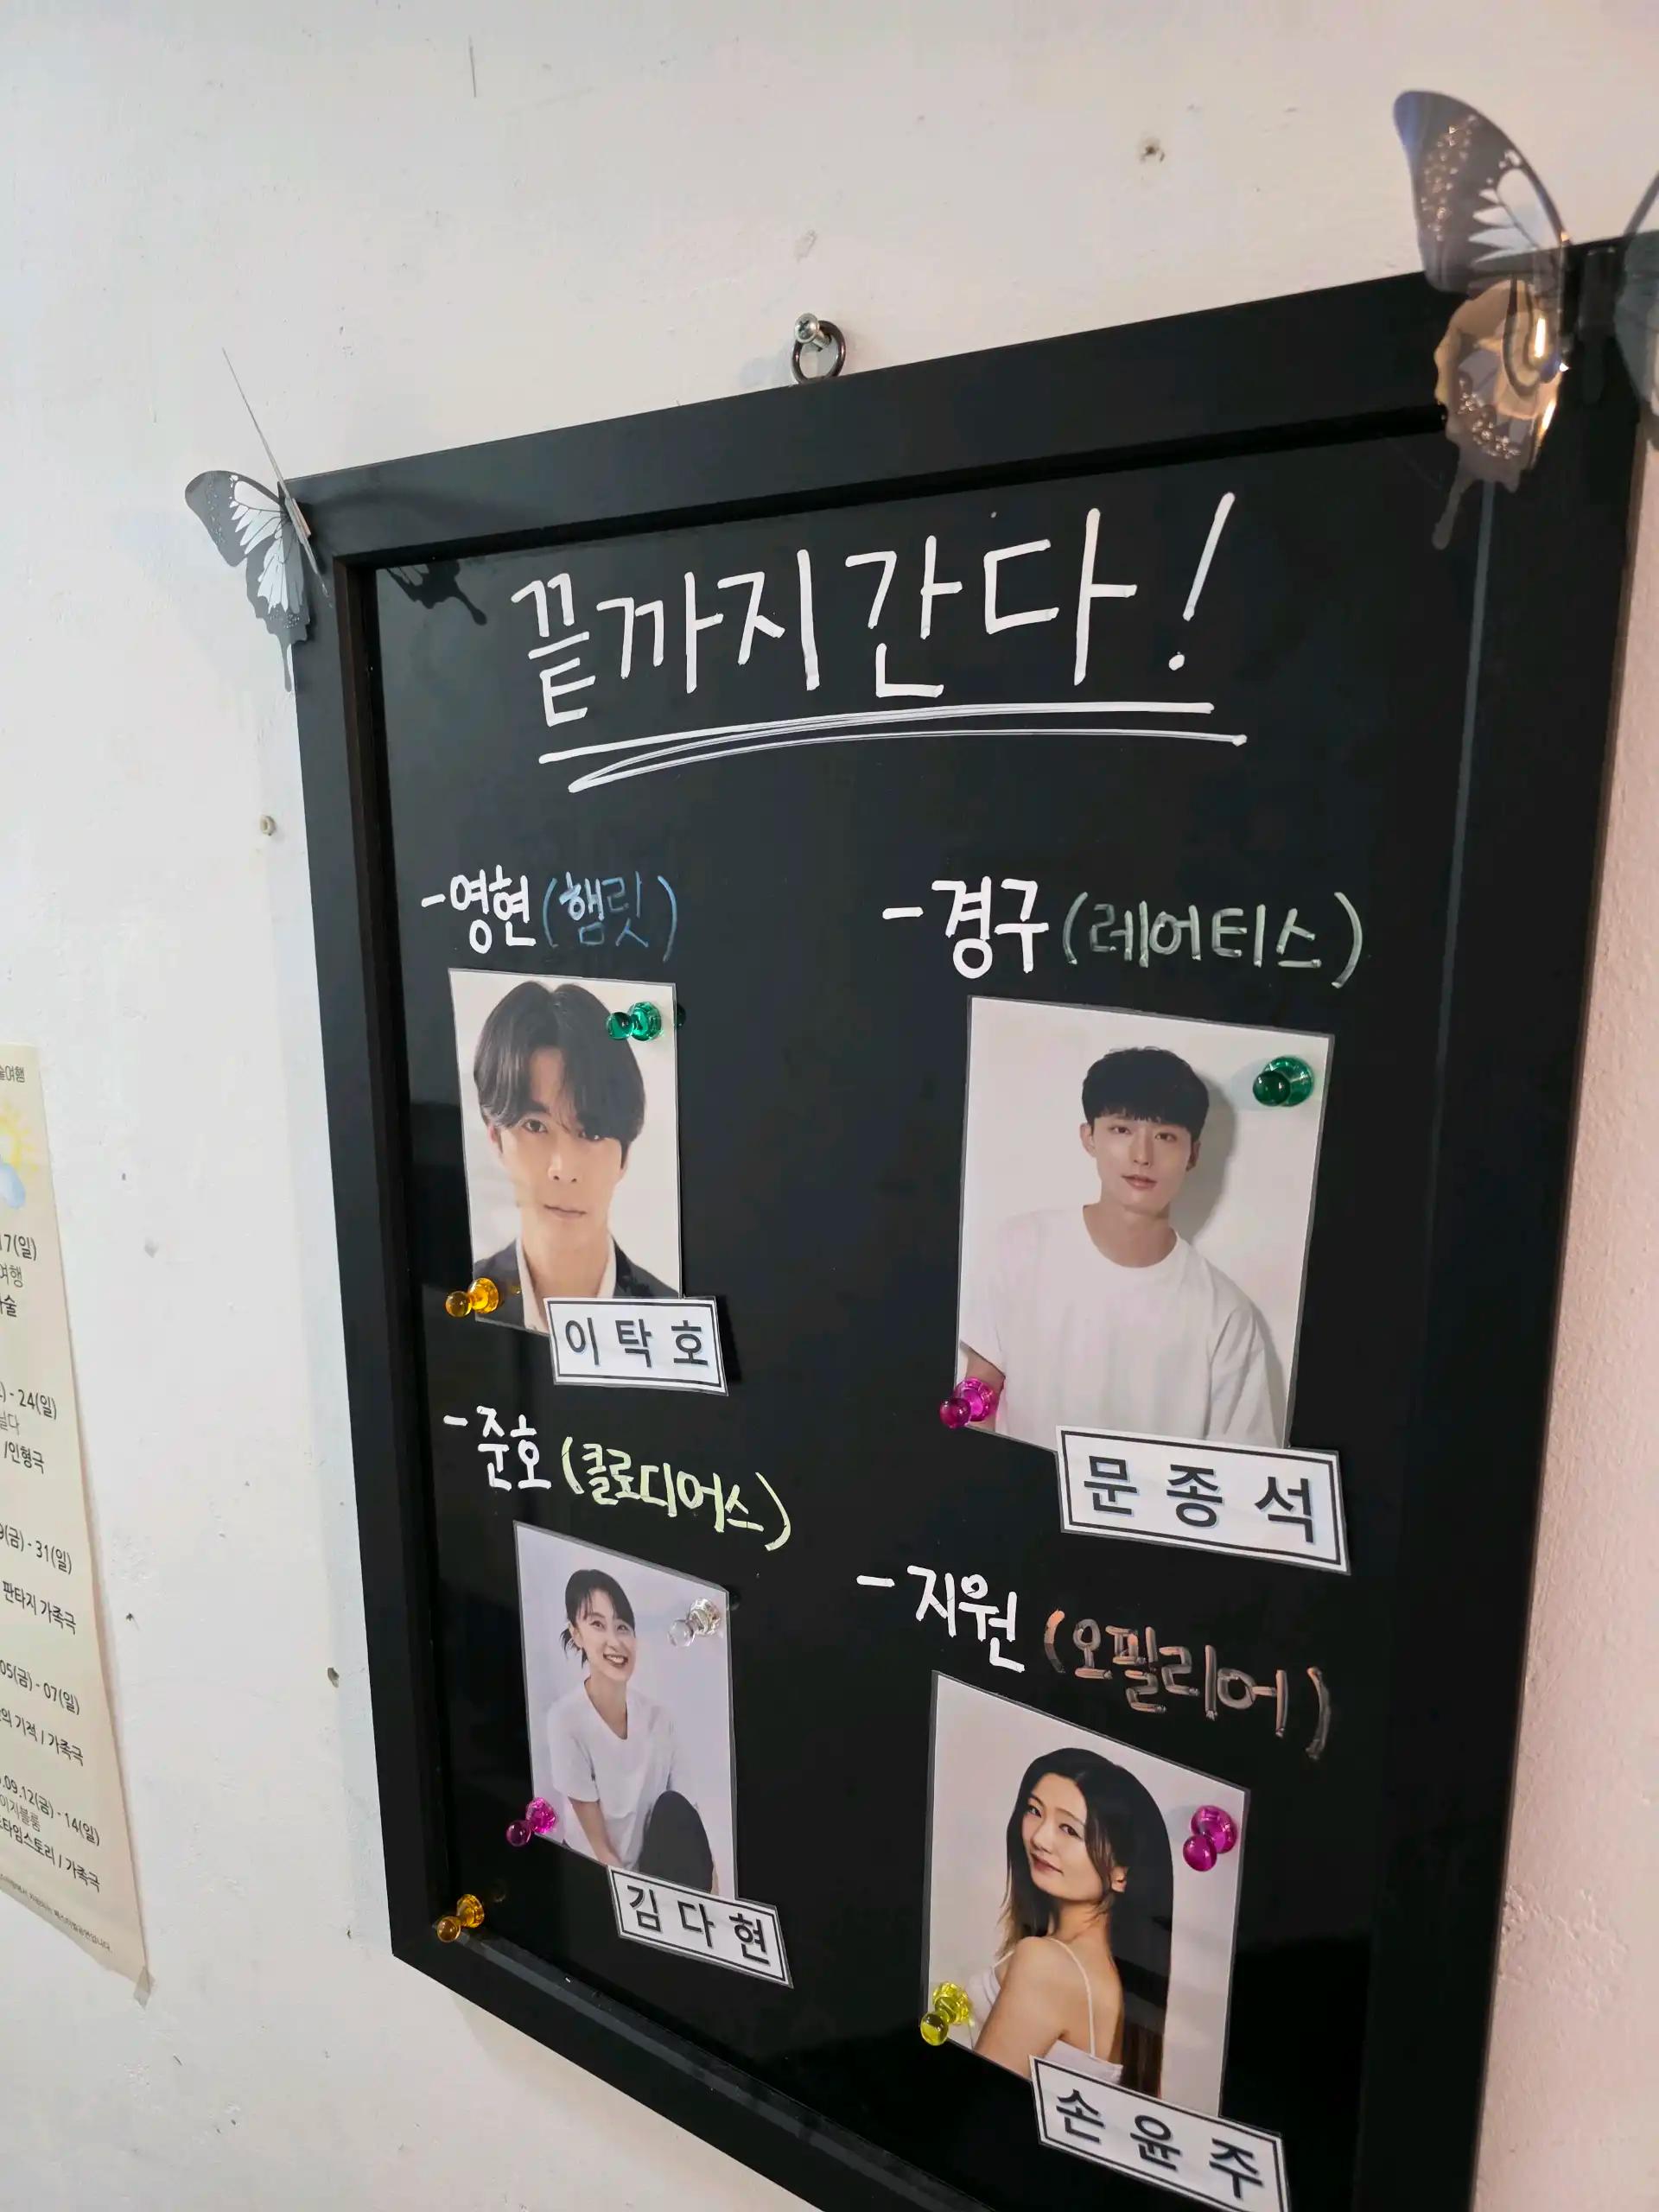 끝까지간다!
-영현(햄릿)
이탁호
-경구(레어티스)
문종석
-준호(클로디어스)
김다현
-지원(오필리어)
손윤주
17(일)
여행
- 24(일)
/인형극
(금) - 31(일)
판타지 가족극
05(금) - 07(일)
의 기적 / 가족극
.09.12(금) - 14(일)
타임스토리 / 가족극